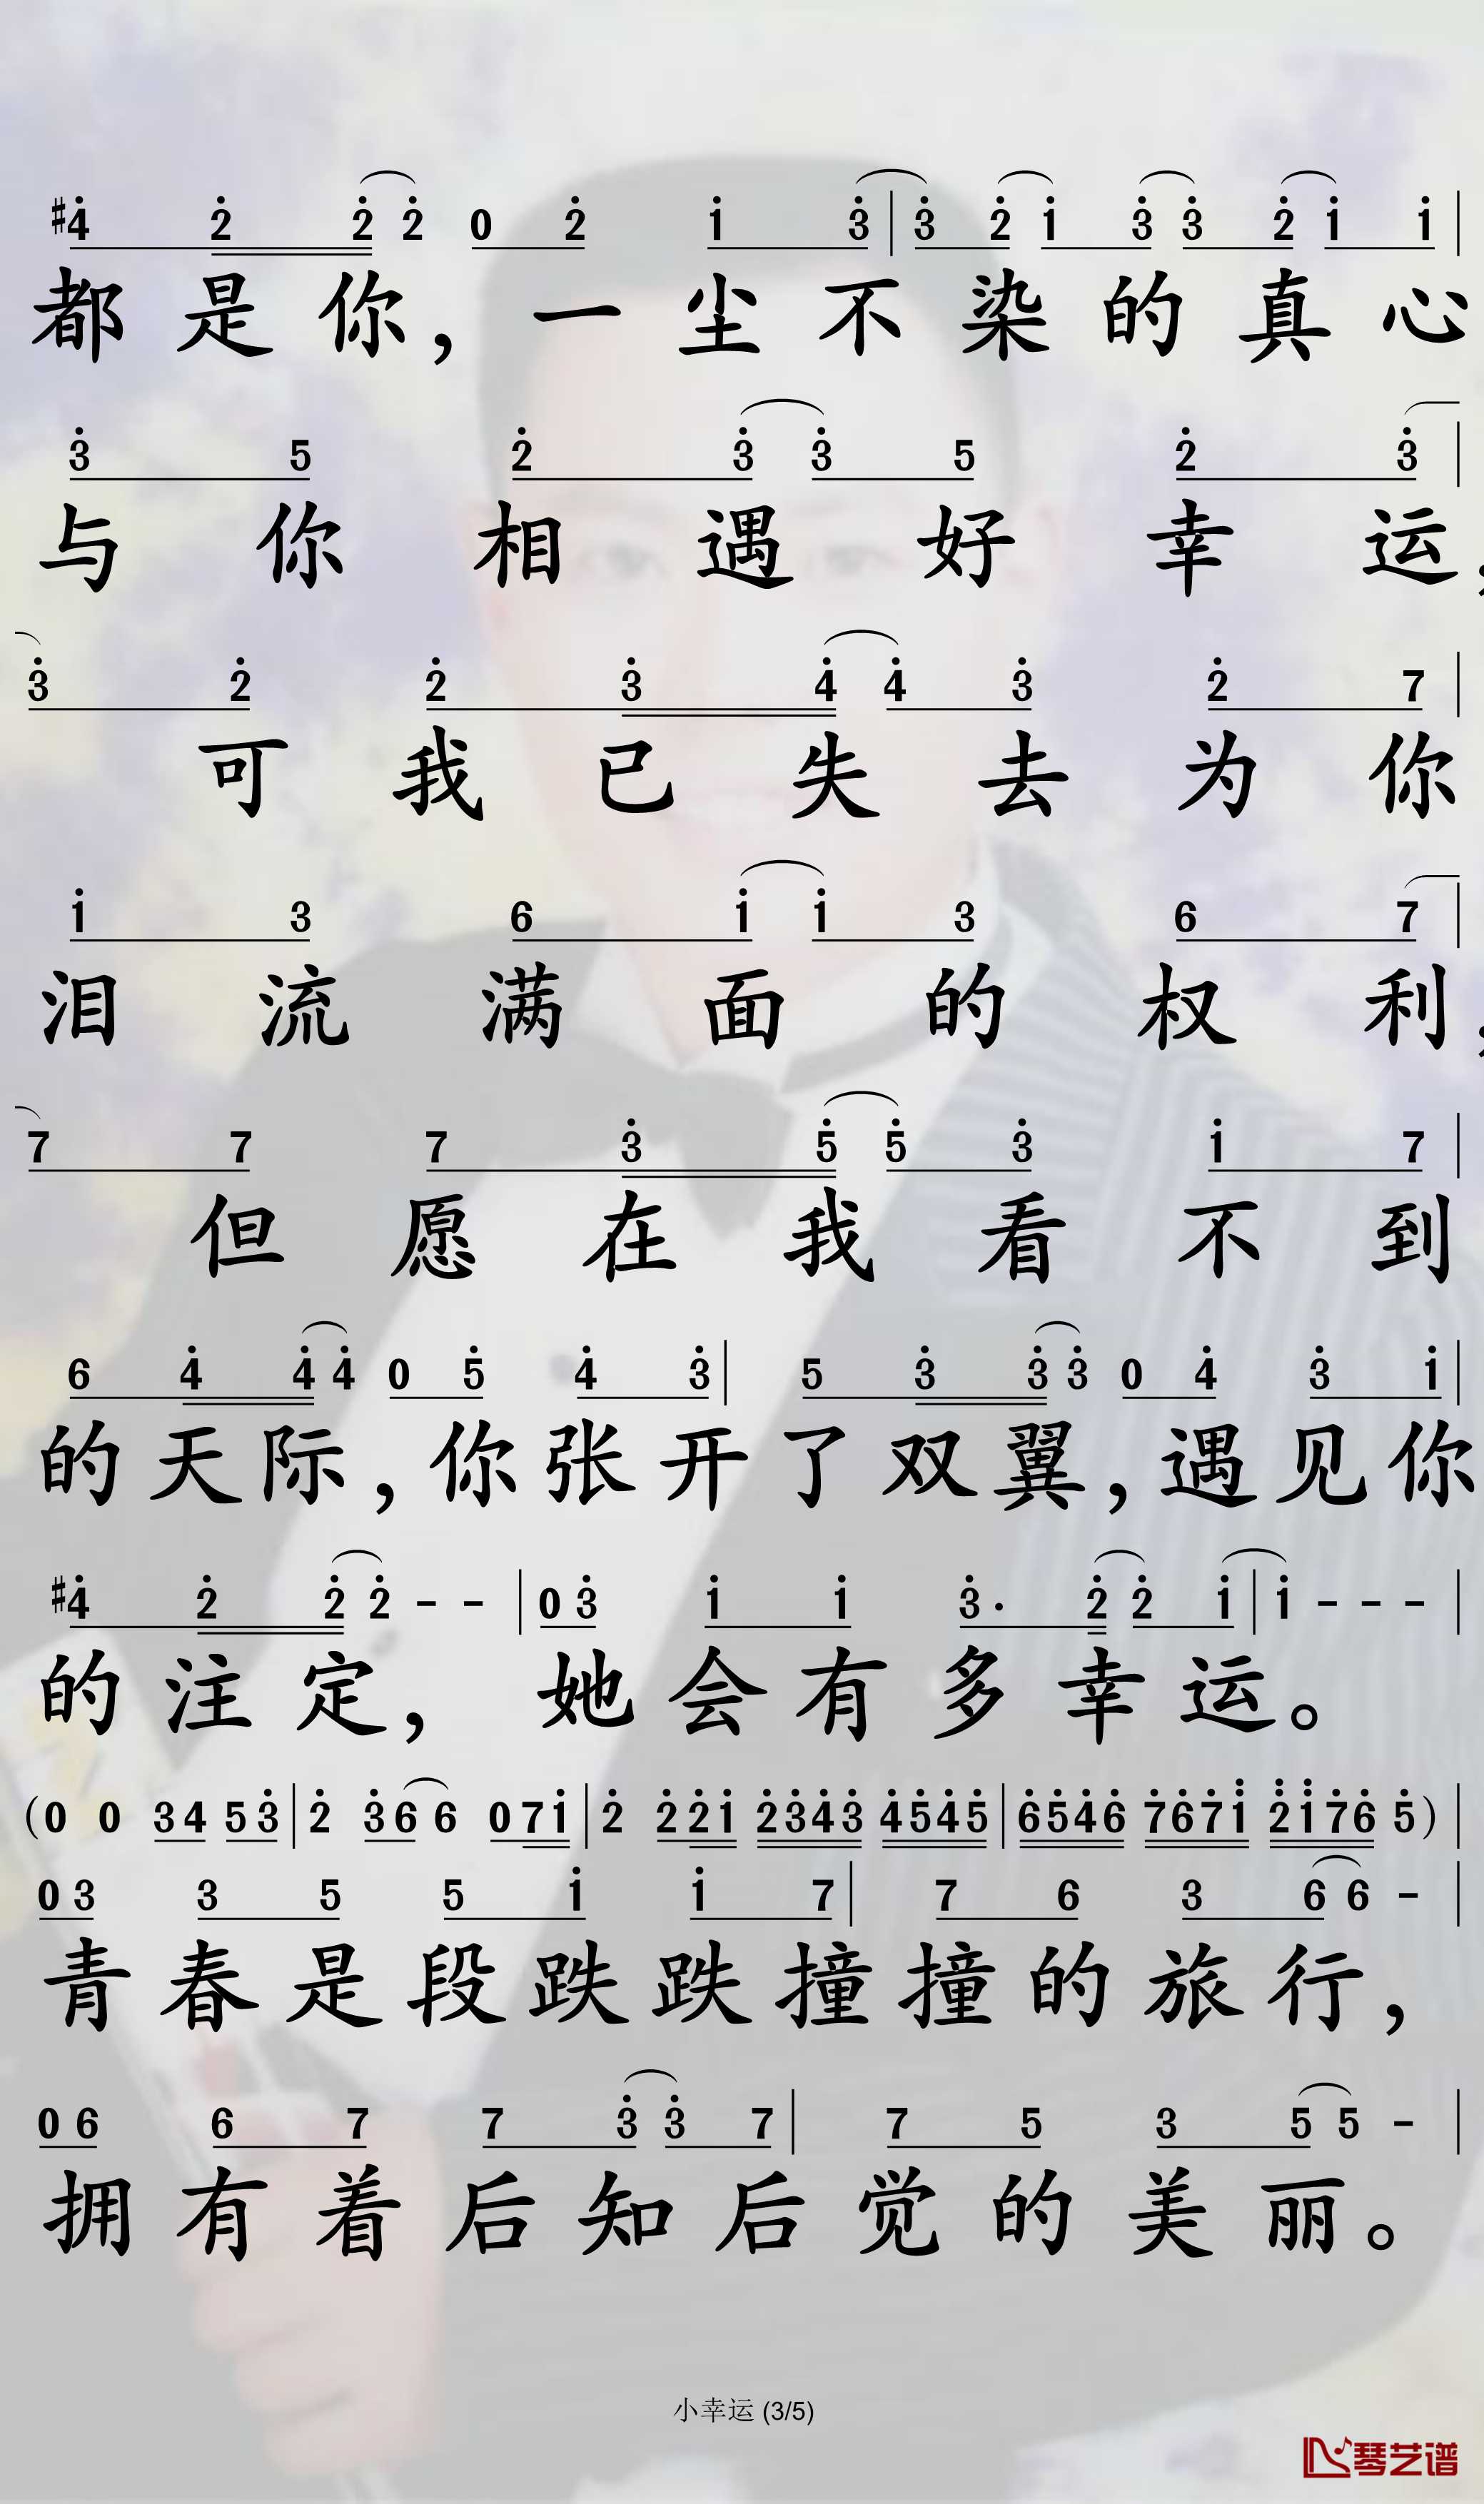 #4̇ 2̇ 2̇ 2̇ 0 2̇ 1̇ 3̇ | 3̇ 2̇ 1̇ 3̇ 3̇ 2̇ 1̇ 1̇ |
都是你，一尘不染的真心
3̇ 5 2̇ 3̇ 3̇ 5 2̇ 3̇ |
与你相遇好幸运，
3̇ 2̇ 2̇ 3̇ 4̇ 4̇ 3̇ 2̇ 7 |
可我已失去为你
1̇ 3 6 1̇ 1̇ 3 6 7 |
泪流满面的权利，
7 7 7 3̇ 5̇ 5̇ 3̇ 1̇ 7 |
但愿在我看不到
6 4̇ 4̇ 4̇ 0 5̇ 4̇ 3̇ | 5 3̇ 3̇ 3̇ 0 4̇ 3̇ 1̇ |
的天际，你张开了双翼，遇见你
#4̇ 2̇ 2̇ 2̇ - - | 0 3̇ 1̇ 1̇ 3̇· 2̇ 2̇ 1̇ | 1̇ - - - |
的注定，她会有多幸运。
(0 0 3 4 5 3̇ | 2̇ 3̇ 6 6 0 7 1̇ | 2̇ 2̇ 2̇ 1̇ 2̇ 3̇ 4̇ 3̇ 4̇ 5̇ 4̇ 5̇ | 6̇ 5̇ 4̇ 6̇ 7̇ 6̇ 7̇ 1̈ 2̈ 1̈ 7̇ 6̇ 5̇) |
0 3 3 5 5 1̇ 1̇ 7 | 7 6 3 6 6 - |
青春是段跌跌撞撞的旅行，
0 6 6 7 7 3̇ 3̇ 7 | 7 5 3 5 5 - |
拥有着后知后觉的美丽。
小幸运 (3/5)
琴艺谱